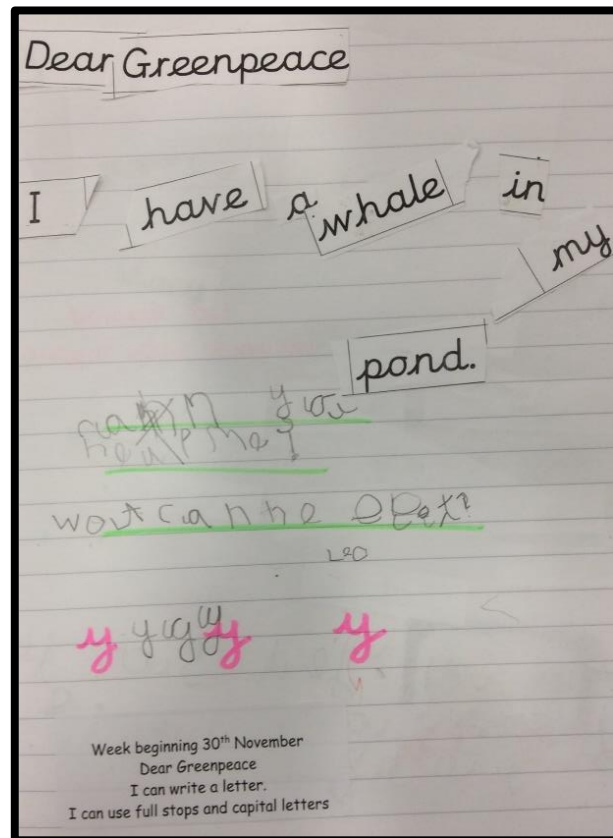 Dear Greenpeace
I have a whale in
my
pond.
can you
help me
wot can he eat?
Leo
y y y y y y
Week beginning 30th November
Dear Greenpeace
I can write a letter.
I can use full stops and capital letters